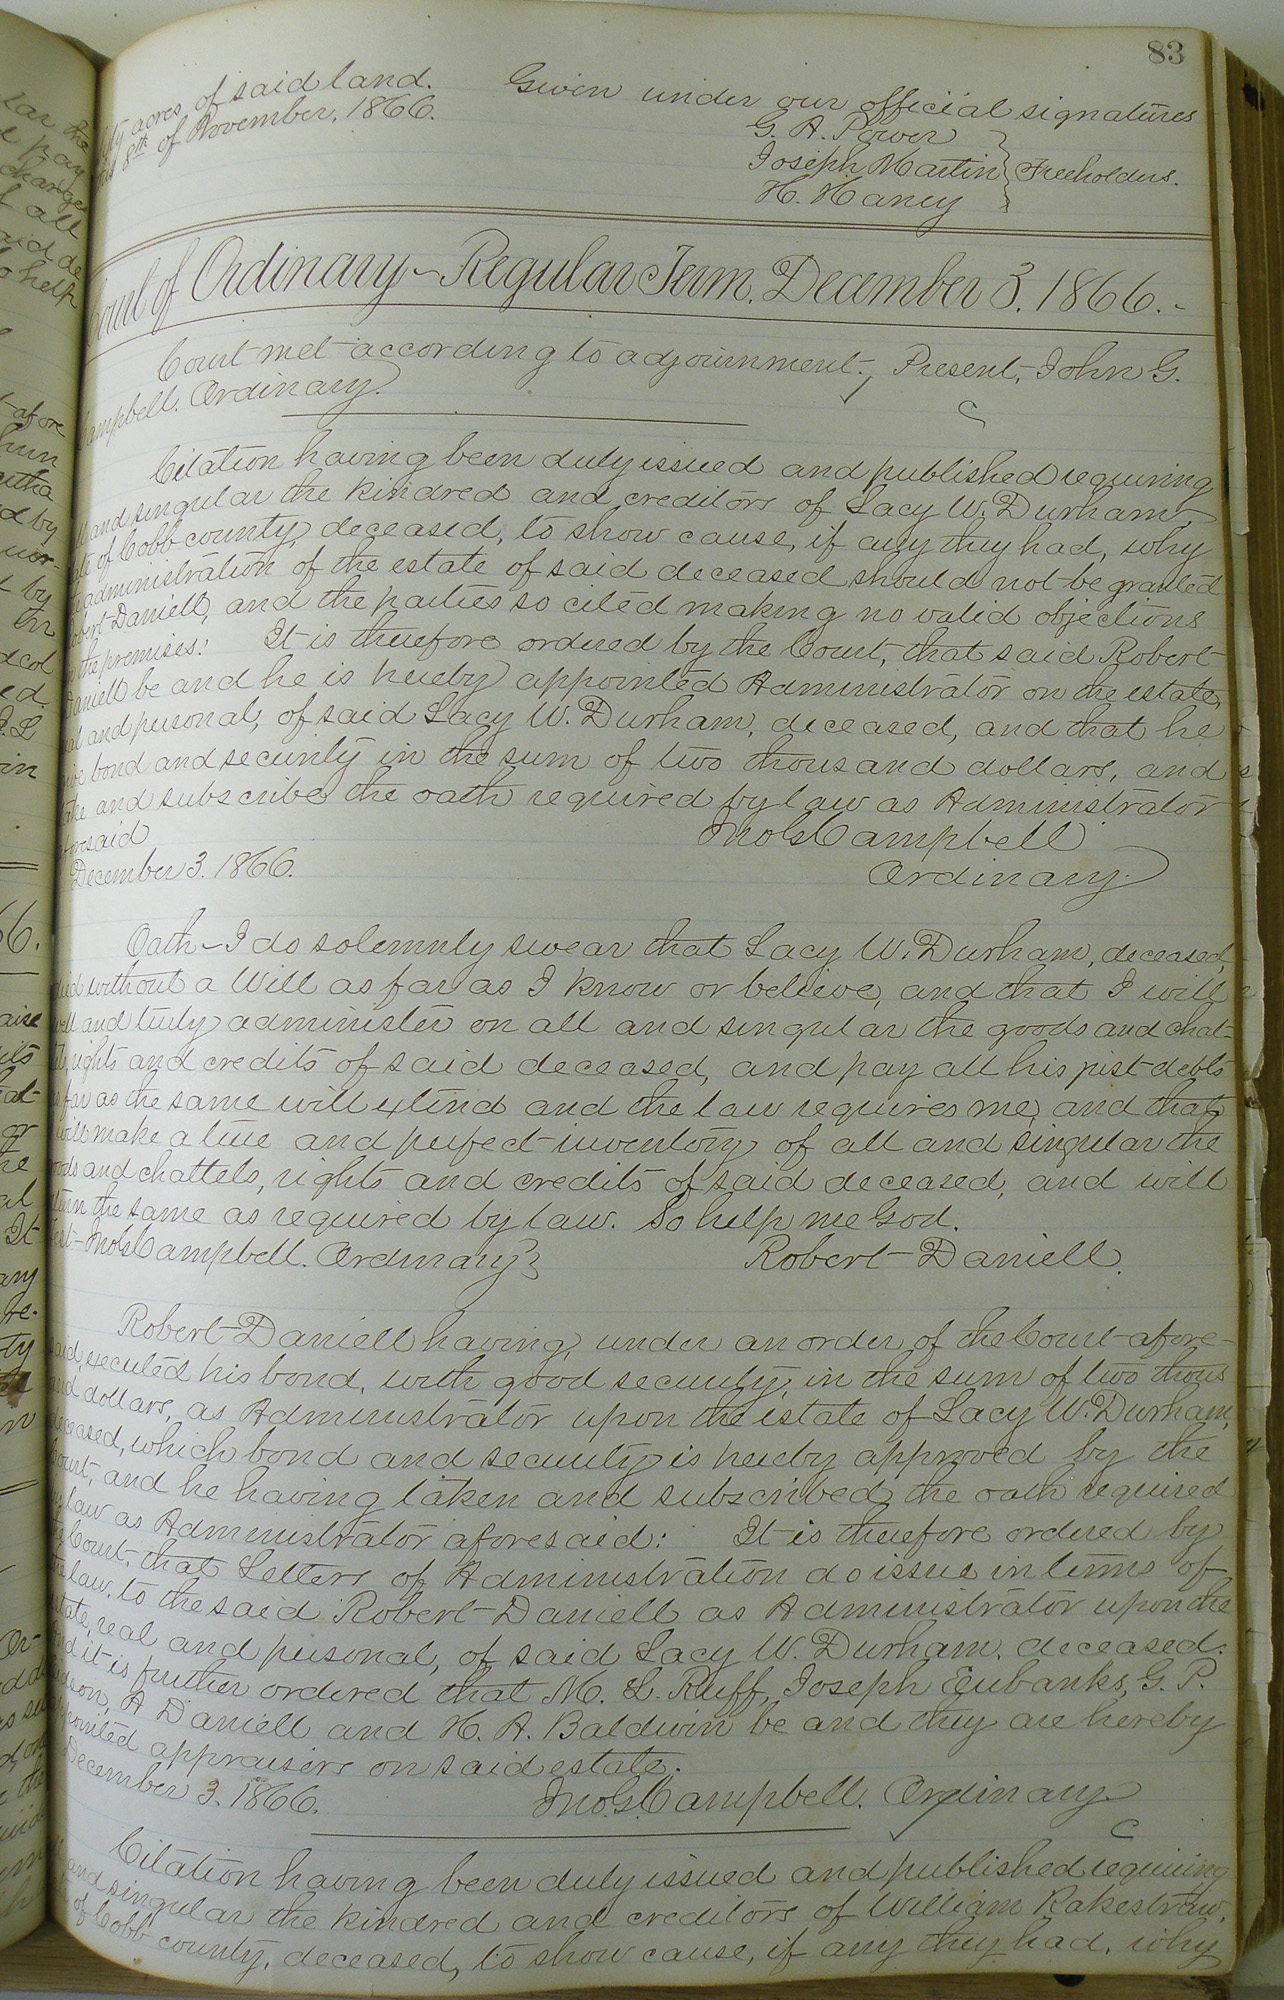 83
acres of said land. Given under our official signatures
8th of November, 1866.
G. A. Power
Joseph Martin } Freeholders.
H. Haney
Court of Ordinary ~ Regular Term, December 3. 1866. ~
Court met according to adjournment. Present, John G.
Campbell. Ordinary.
Citation having been duly issued and published requiring
all and singular the kindred and creditors of Lacy W. Durham,
late of Cobb county, deceased, to show cause, if any they had, why
administration of the estate of said deceased should not be granted
Robert Daniell, and the parties so cited making no valid objections
the premises: It is therefore ordered by the Court, that said Robert
Daniell be and he is hereby appointed Administrator on the estate,
real and personal, of said Lacy W. Durham, deceased, and that he
give bond and security in the sum of two thousand dollars, and
take and subscribe the oath required by law as Administrator
aforesaid Jno G. Campbell
December 3. 1866. Ordinary.
Oath ~ I do solemnly swear that Lacy W. Durham, deceased,
died without a Will as far as I know or believe, and that I will
well and truly administer on all and singular the goods and chat-
tels, rights and credits of said deceased, and pay all his just debts
as far as the same will extend and the law requires me, and that
will make a true and perfect inventory of all and singular the
goods and chattels, rights and credits of said deceased, and will
return the same as required by law. So help me God.
Test - Jno G. Campbell. Ordinary } Robert Daniell.
Robert Daniell having, under an order of the Court afore-
said, executed his bond, with good security, in the sum of two thous
and dollars, as Administrator upon the estate of Lacy W. Durham,
deceased, which bond and security is hereby approved by the
Court, and he having taken and subscribed the oath required
by law as Administrator aforesaid: It is therefore ordered by
the Court, that Letters of Administration do issue in terms of
the law, to the said Robert Daniell as Administrator upon the
estate, real and personal, of said Lacy W. Durham, deceased.
And it is further ordered that M. L. Ruff, Joseph Eubanks, G. P.
A Daniell and H. A. Baldwin be and they are hereby
appointed appraisers on said estate.
December 3. 1866. Jno. G. Campbell. Ordinary.
Citation having been duly issued and published requiring
and singular the kindred and creditors of William Rakestraw,
of Cobb county, deceased, to show cause, if any they had, why